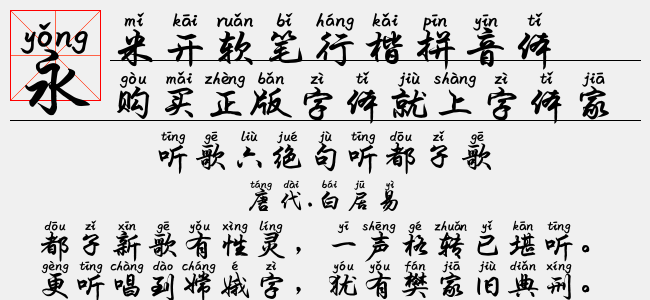 yǒng
永
mǐ kāi ruǎn bǐ háng kǎi pīn yīn tǐ
米开软笔行楷拼音体
gòu mǎi zhèng bǎn zì tǐ jiù shàng zì tǐ jiā
购买正版字体就上字体家
tīng gē liù jué jù tīng dōu zǐ gē
听歌六绝句听都子歌
táng dài bái jū yì
唐代.白居易
dōu zǐ xīn gē yǒu xìng líng yī shēng gé zhuǎn yǐ kān tīng
都子新歌有性灵，一声格转已堪听。
gèng tīng chàng dào cháng é zì yóu yǒu fán jiā jiù diǎn xíng
更听唱到嫦娥字，犹有樊家旧典刑。